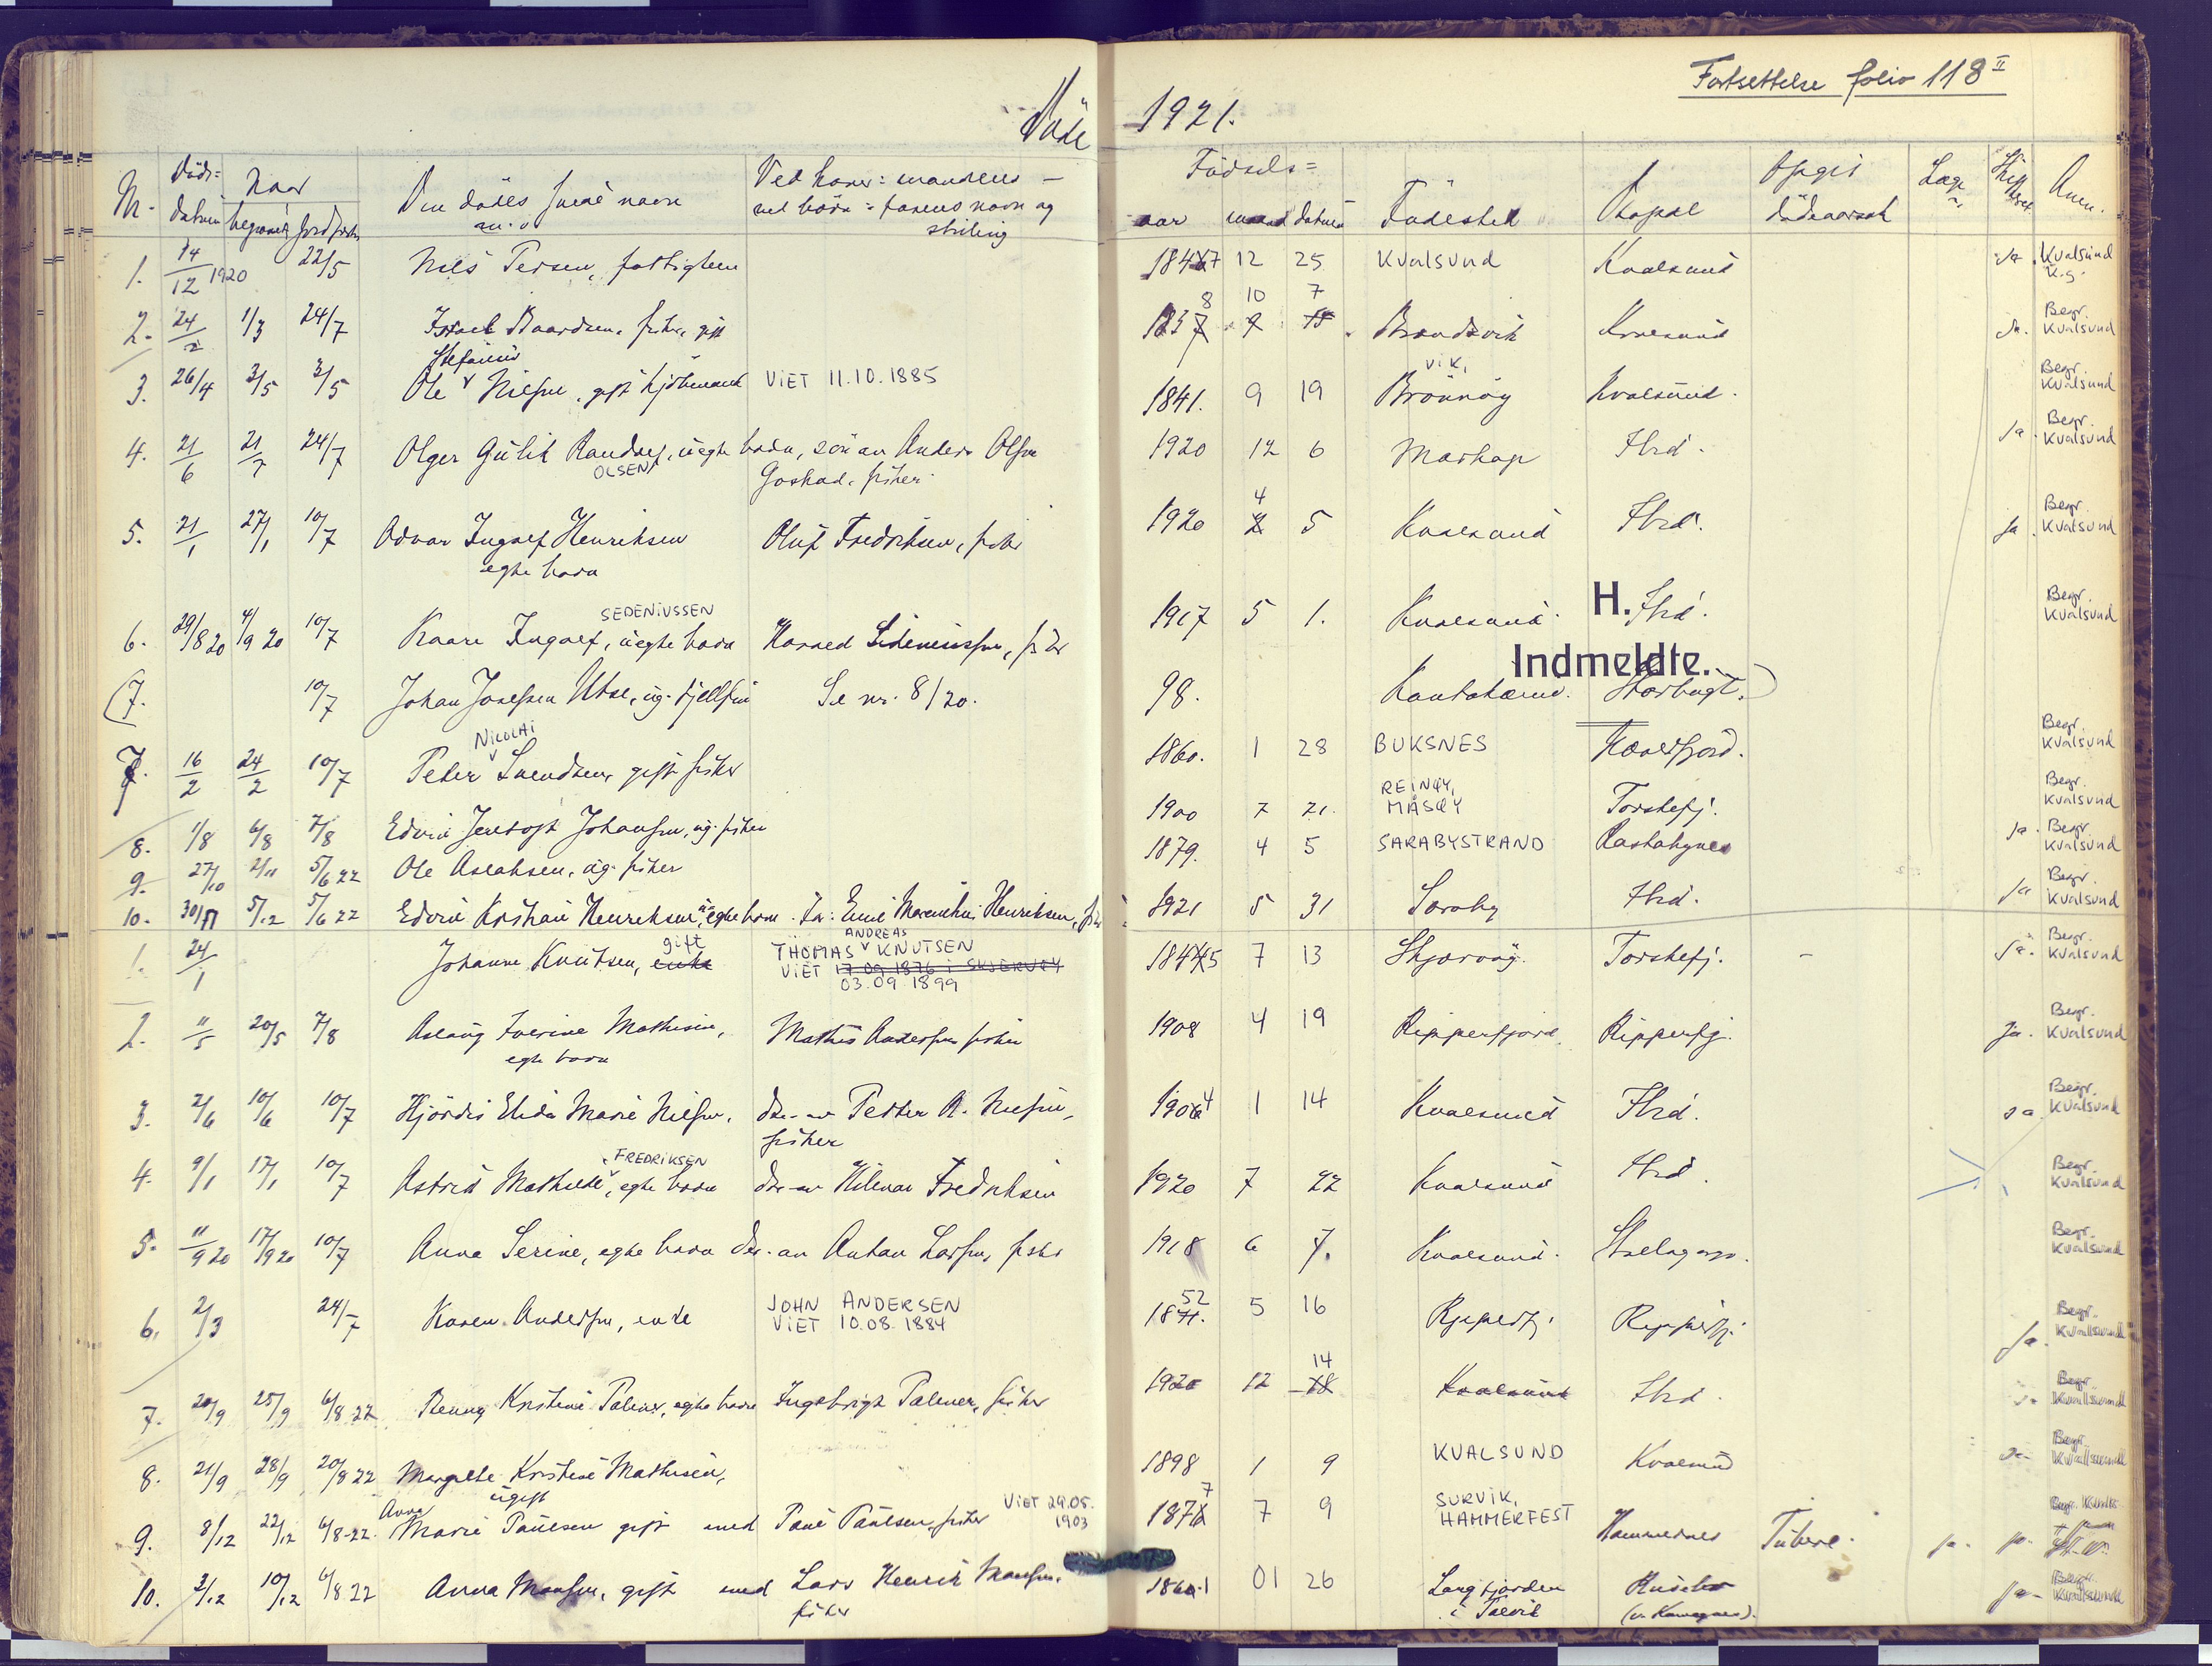 Fortsettelse folio 118 II
Döde 1921.
Nr. Döds= datum Naar begravet jordfestet Den dödes fulde navn Ved koner: mandens - ved börn: farens navn og stilling Födsels= aar maaned datum Födested Bopæl Opgit dödsaarsak Læge Anm.
1. 14/12 1920 22/5 Nils Persen, fattiglem 1847 12 25 Kvalsund Kvalsund Ja. Kvalsund K.g.
2. 24/2 1/3 24/7 Israel Baardsen, fisker, gift 1838 10 7 Kvalsund Ja. Begr. Kvalsund
3. 26/4 3/5 3/5 Ole Nilsen, gift VIET 11.10.1885 1841. 9 19 VIK, Brönnöy Kvalsund. Begr. Kvalsund
4. 21/6 21/7 24/7 Olger Gulik Randolf, uegte barn, sön av Anders Olsen 1920 12 6 Markop Ibid. Ja. Begr. Kvalsund
OLSEN fisker
5. 21/1 27/1 10/7 Odvar Ingolf Henriksen Oluf Fredriksen, fisker 1920 4 5 Kvalsund Ibid. Ja. Begr. Kvalsund
egte barn
6. 29/8 20 4/9 20 10/7 Kaare Ingolf, uegte barn SEDENIUSSEN Sideniussen, fisker 1917 5 1. Kvalsund. Ibid. Begr. Kvalsund
H.
Indmeldte.
(7. 10/7 Johan Josefsen Utse, ug. Se nr. 8/20. 98.
7. 16/2 24/2 10/7 Peter NICOLAI Svendsen, gift fisker 1860. 1 28 BUKSNES Begr. Kvalsund
8. 1/8 6/8 7/8 Edvin Johansen, ug. fisker 1900 7 21. REINØY, MÅSØY Torskefj. Begr. Kvalsund
9. 27/10 2/11 5/6 22 Ole Aslaksen, ug. fisker 1879. 4 5 SARABYSTRAND Ja. Begr. Kvalsund
10. 30/11 5/12 5/6 22 Edvin Kristian Henriksen, uegte barn. Emil Henriksen, 1921 5 31 Saraby Ibid. Ja Begr. Kvalsund
1. 24/1 Johanne Knutsen, enke gift THOMAS ANDREAS KNUTSEN 1845 7 13 Skjervöy. Torskefj. - Ja. Begr. Kvalsund
VIET 17.09.1876 i SKJERVØY
03.09.1899
2. 11/5 20/5 7/8 Aslaug Iverine Mathisen, Mathis Andersen fisker 1908 4 19 Ripperfjord Ripperfj. Ja. Begr. Kvalsund
egte barn
3. 2/6 10/6 10/7 Hjördis Elida Marie Nilsen. dtr. av Petter A. Nilsen, 1904 1 14 Kvalsund Ibid. Ja. Begr. Kvalsund
fisker
4. 9/1 17/1 10/7 Astrid Mathilde FREDRIKSEN, egte barn dtr. av Hilmar Fredriksen 1920 7 22 Kvalsund Ibid. Begr. Kvalsund
5. 11/9 20 17/9 20 10/7 Anna Serine, egte barn dtr. av Anton Larsen, fisker 1918 6 7. Kvalsund. Begr. Kvalsund
6. 2/3 24/7 Karen Andersen, enke JOHN ANDERSEN 1852 5 16 Ripperfj. Ripperfj. Ja. Begr. Kvalsund
VIET 10.08.1884
7. 20/9 25/9 6/8 22 Kristine Palmer, egte barn Ingebrigt Palmer, fisker 1920 12 14 Kvalsund Ibid. Begr. Kvalsund
8. 21/9 28/9 20/8 22 Margrethe Kristine Mathisen, 1898 1 9 KVALSUND Kvalsund Begr. Kvalsund
ugift
9. 8/12 22/12 6/8-22. Anna Marie Paulsen gift med Paul Paulsen, fisker VIET 29.05.1903 1877 7 9 SURVIK, HAMMERFEST Tuberc. ja.
10. 2/12 10/12 6/8 22 Anna Monsen, gift med Lars Henrik Monsen. 1861 01 26 Langfjorden i Talvik Ja. Begr. Kvalsund
fisker